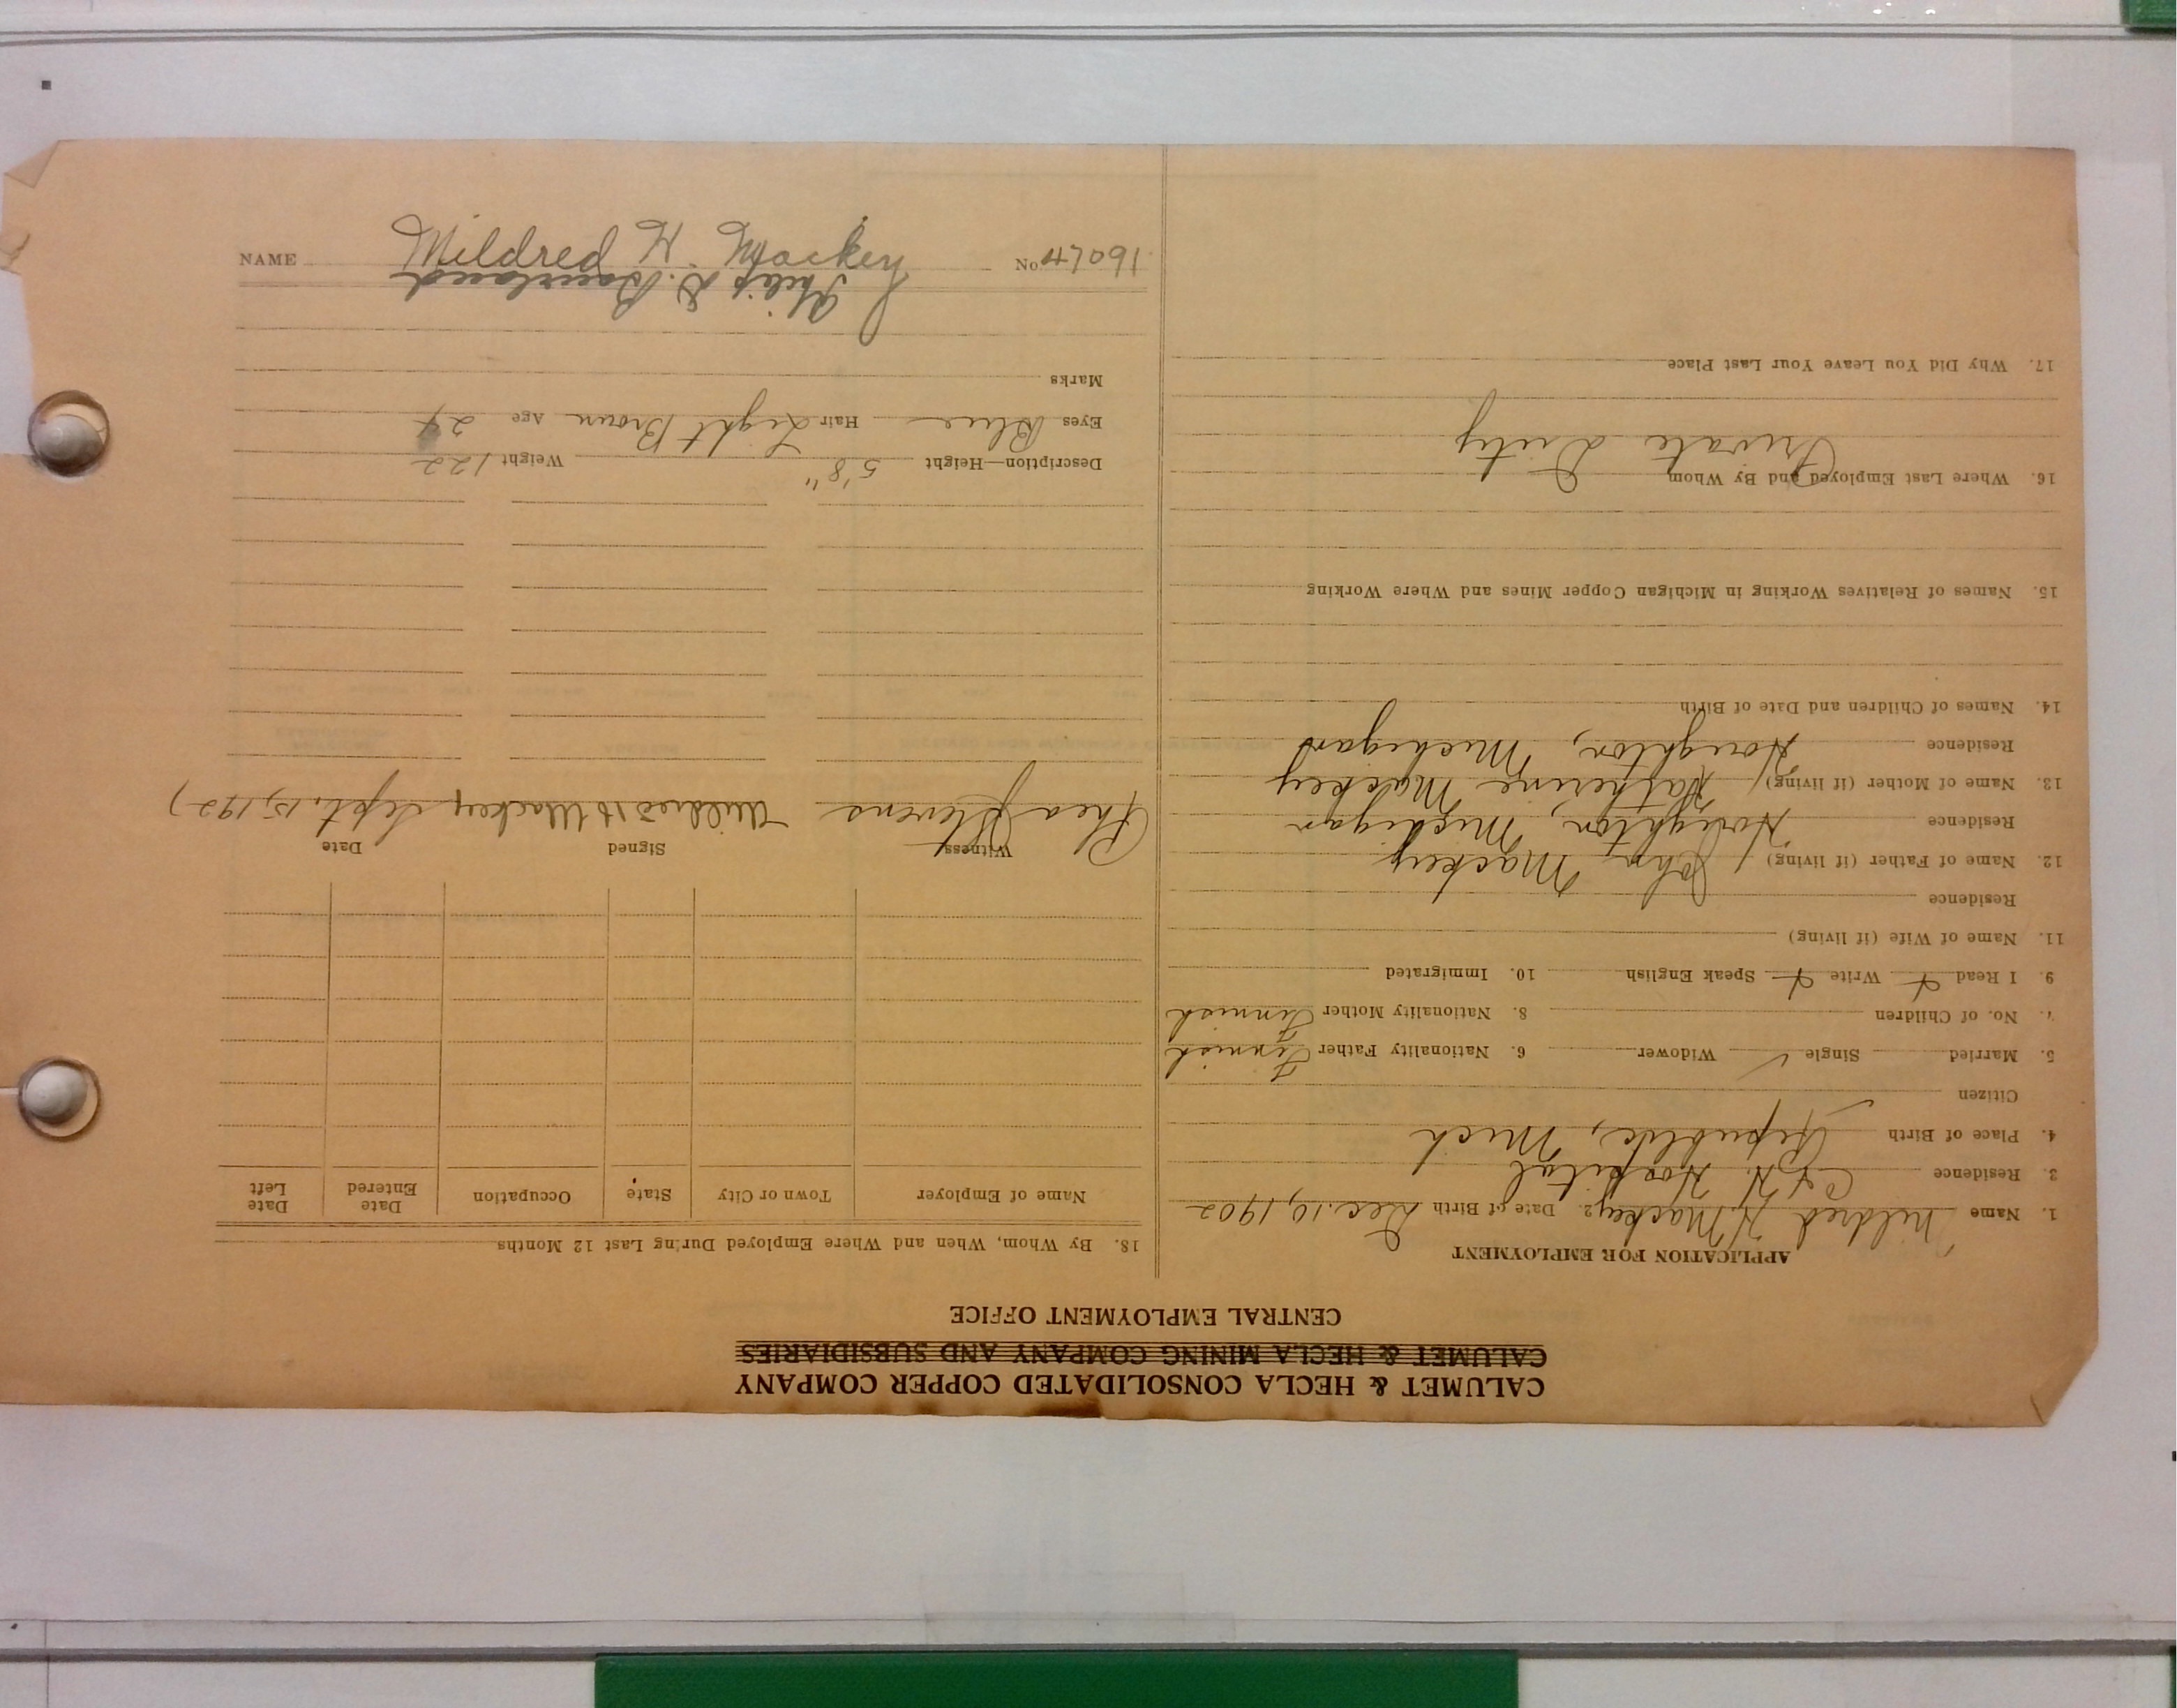 CALUMET & HECLA CONSOLIDATED COPPER COMPANY
CALUMET & HECLA MINING COMPANY AND SUBSIDIARIES
CENTRAL EMPLOYMENT OFFICE
APPLICATION FOR EMPLOYMENT
1. Name Mildred H. Mackey 2. Date of Birth Dec. 10, 1902
3. Residence C & H. Hospital
4. Place of Birth Republic, Mich
Citizen
5. Married Single ✓ Widower 6. Nationality Father Finnish
7. No. of Children 8. Nationality Mother Finnish
9. I Read Write Speak English 10. Immigrated
11. Name of Wife (if living)
Residence
12. Name of Father (if living) John Mackey
Residence Houghton, Michigan
13. Name of Mother (if living) Katherine Mackey
Residence Houghton, Michigan
14. Names of Children and Date of Birth
15. Names of Relatives Working in Michigan Copper Mines and Where Working
16. Where Last Employed and By Whom
Private Duty
17. Why Did You Leave Your Last Place
18. By Whom, When and Where Employed During Last 12 Months
Name of Employer Town or City State Occupation Date Entered Date Left
Witness Signed Date
Rhea Stevens Mildred H Mackey Sept. 15, 1927
Description—Height 5'8" Weight 122
Eyes Blue Hair Light Brown Age 24
Marks
Philip D.
NAME Mildred H. Mackey
No 16074